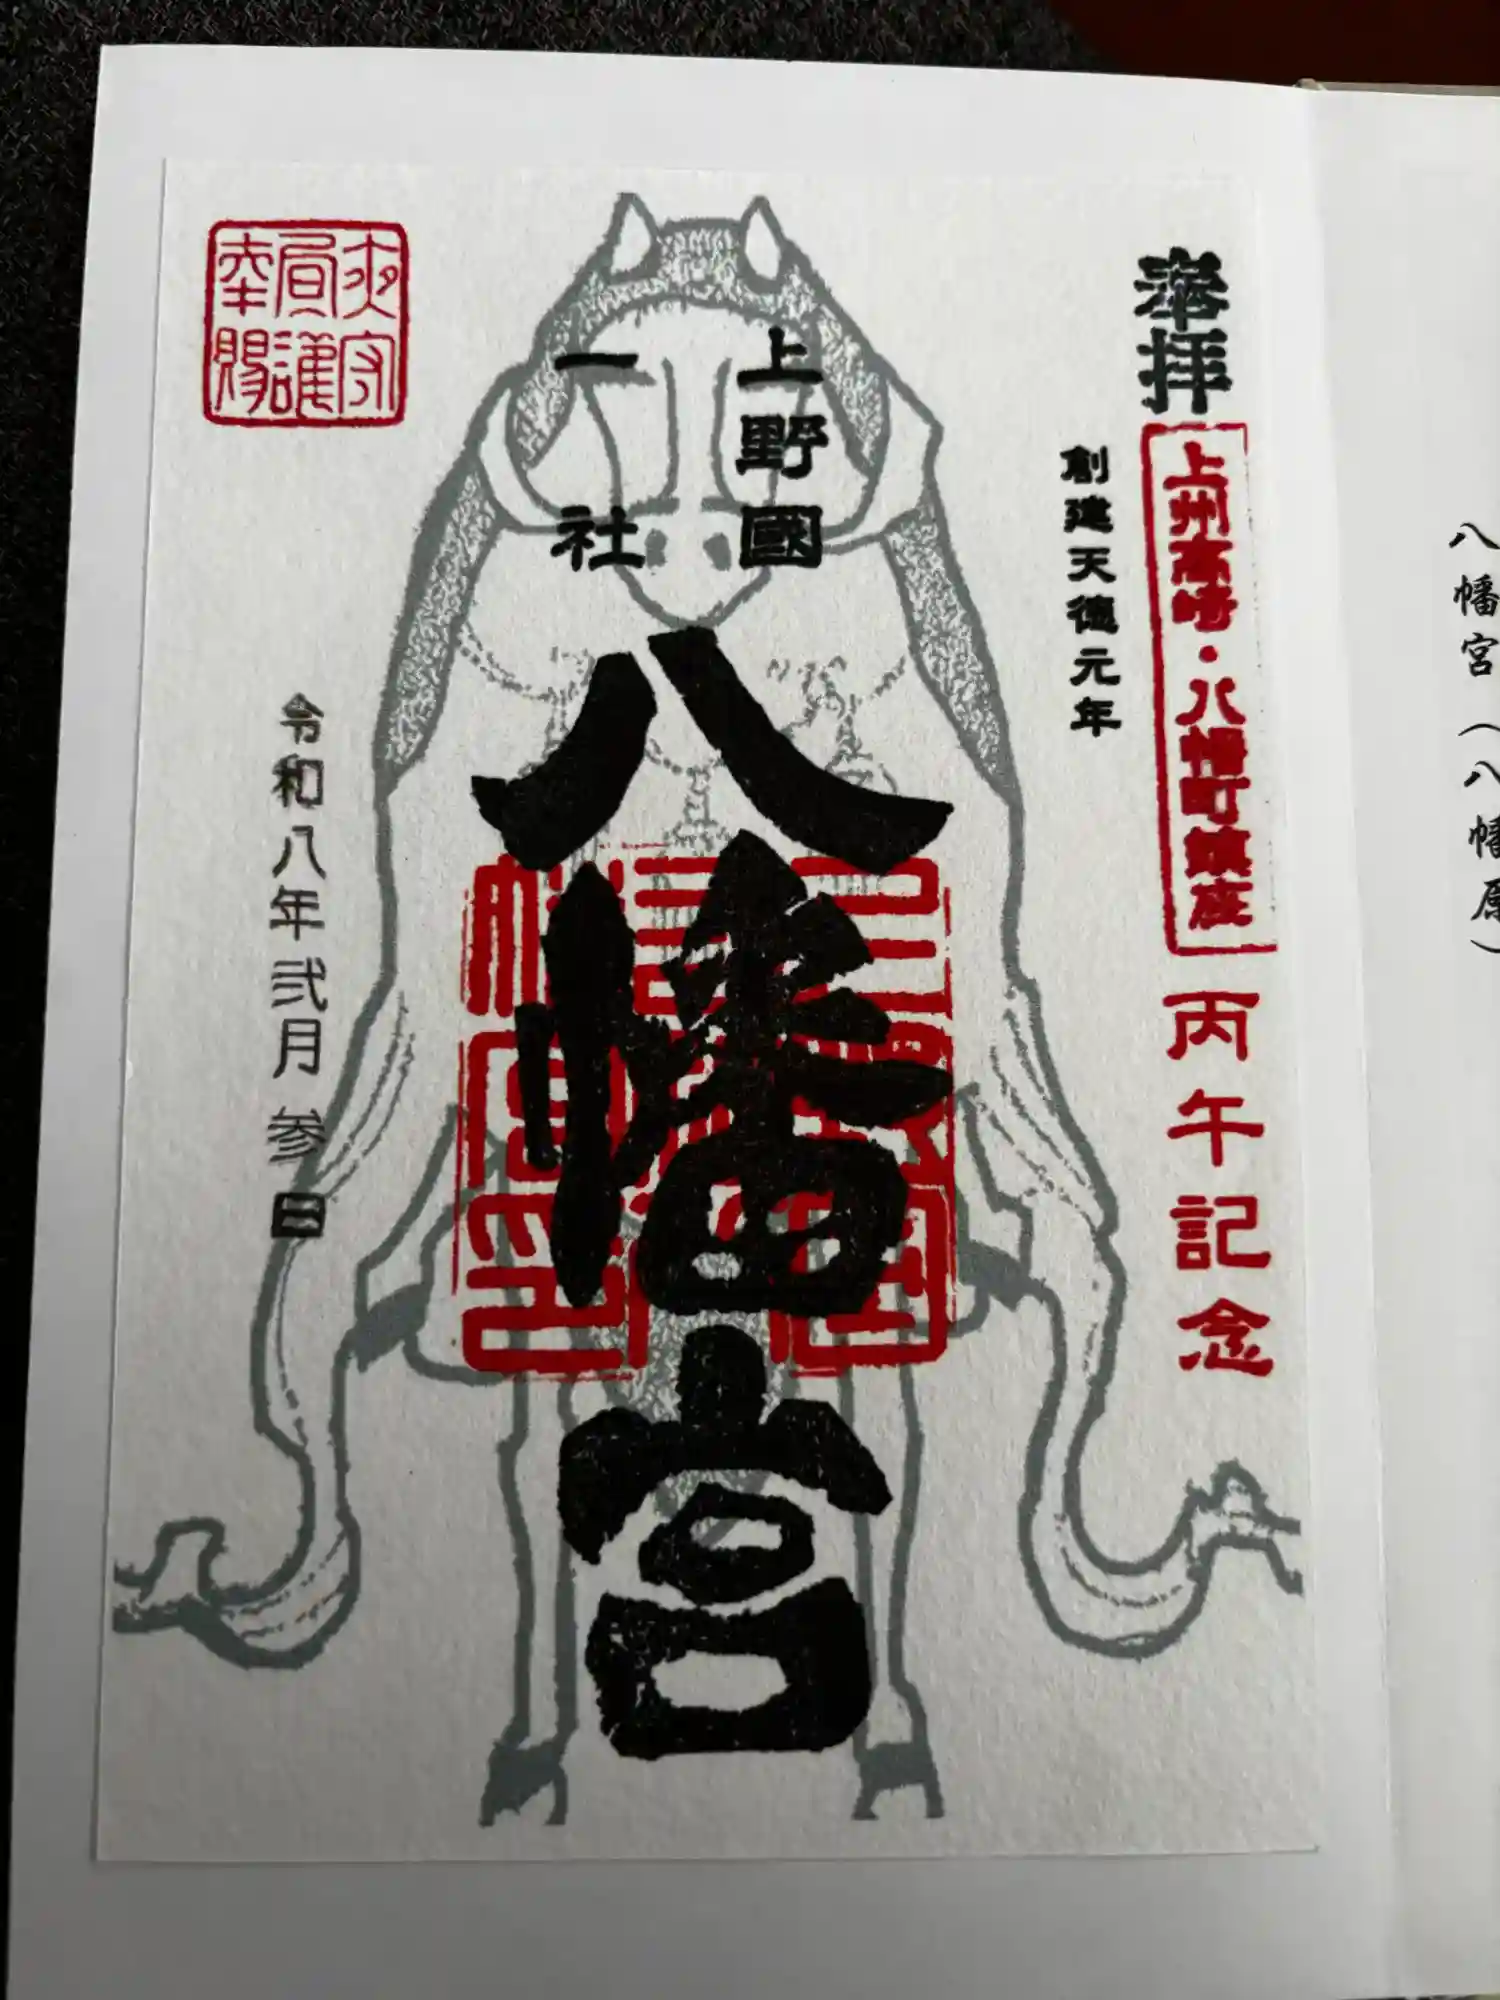 八幡宮（八幡原）
奉拝
上州高崎・八幡町鎮座
丙午記念
創建天徳元年
上野國
一社
八幡宮
令和八年弐月参日
夾守
昼護
奉賜